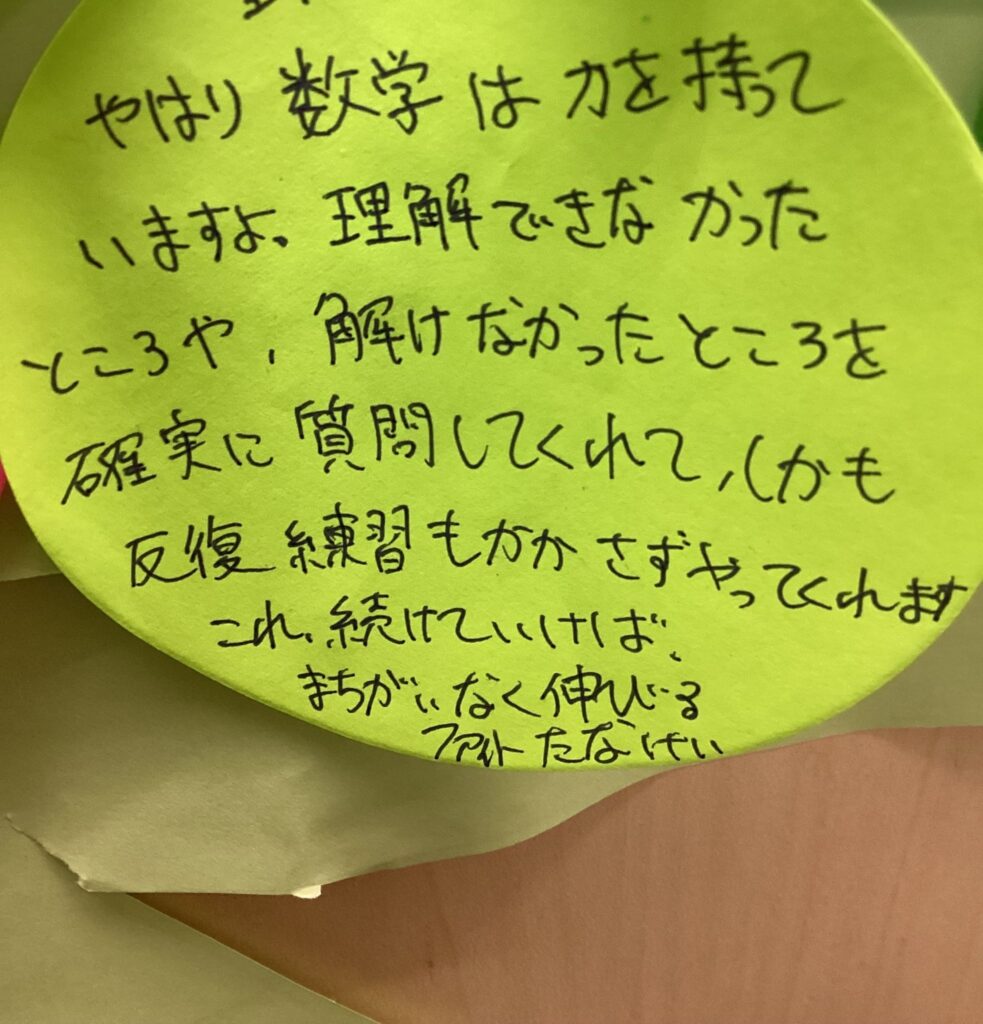 やはり 数学 は 力を 持って
いますよ。理解できな かった
ところや、解けなかったところを
確実に 質問してくれて、しかも
反復 練習もかか さずやってくれます
これ、続けていければ、
まちがいなく伸びる
ファイト たなけい